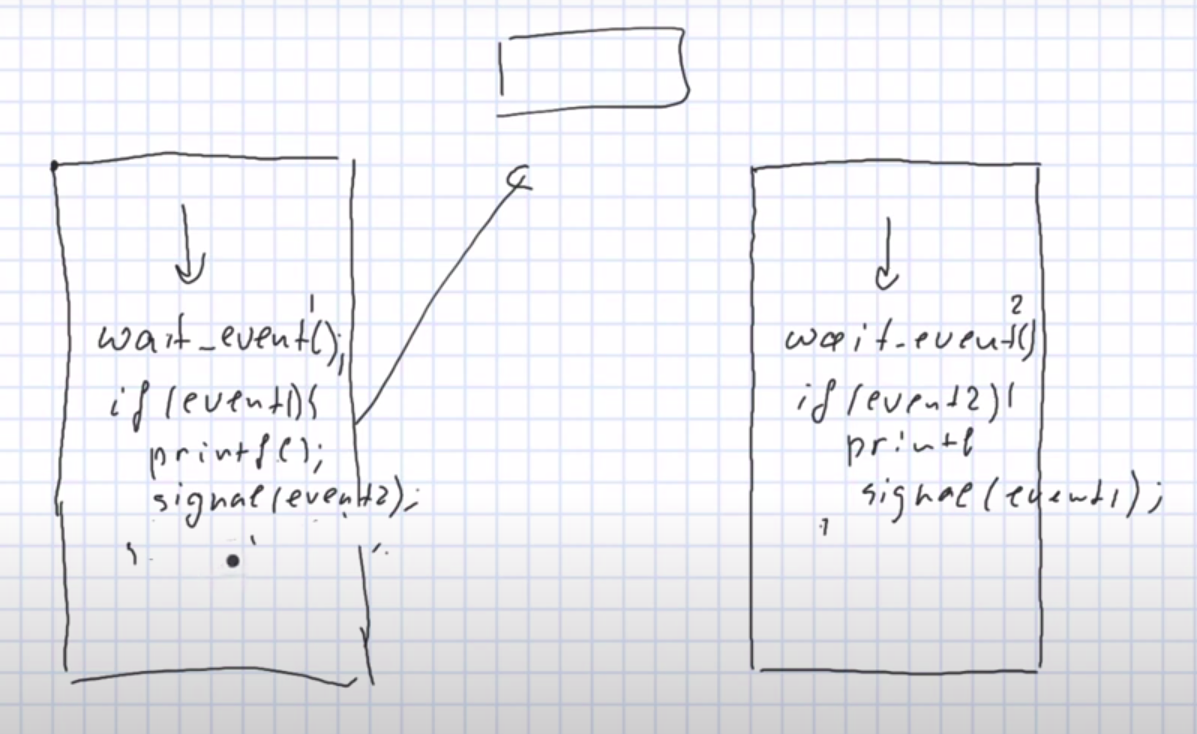 wait_event1();
if(event1){
printf();
signal(event2);
}
wait_event2()
if(event2){
printf
signal(event1);
}